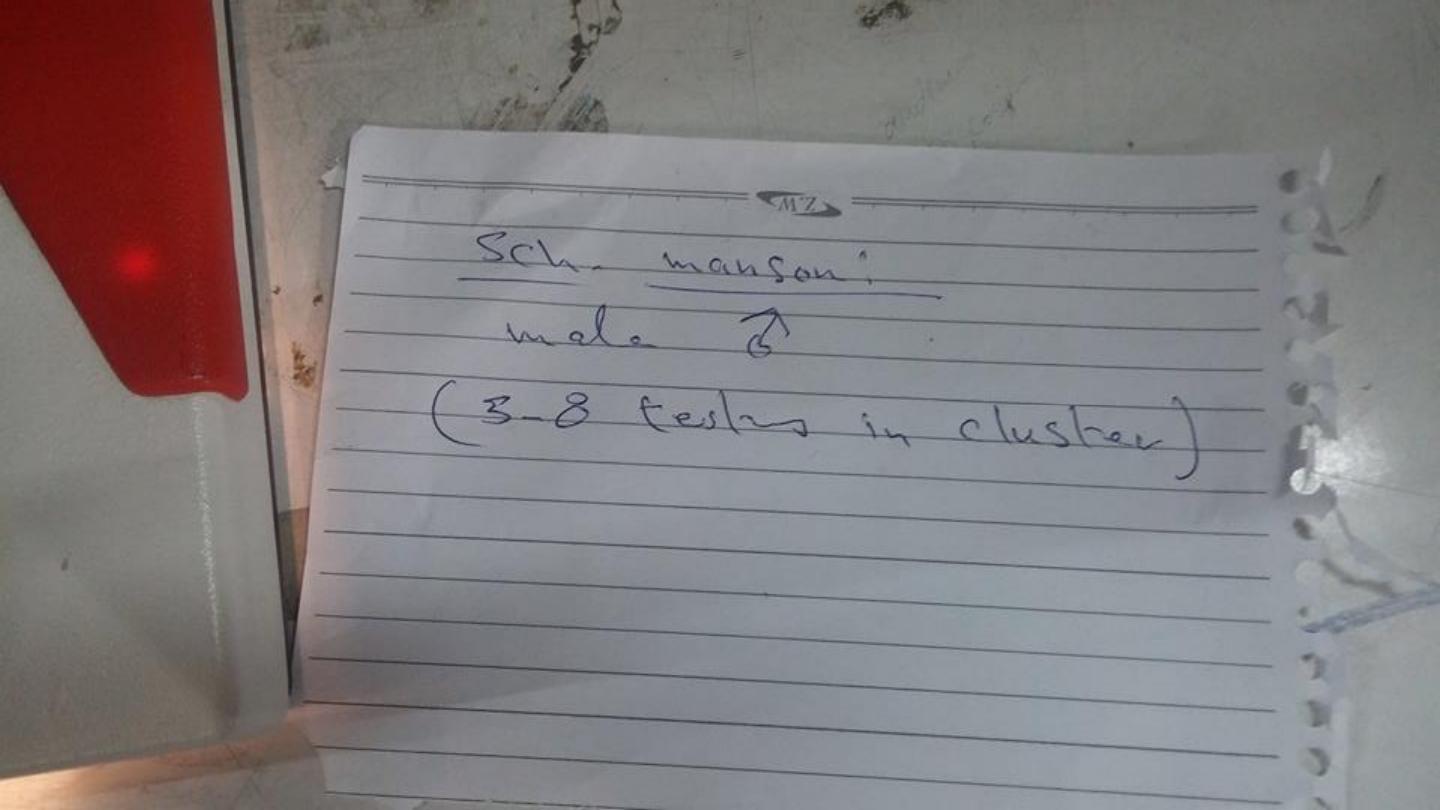 MZ
Sch. mansoni
male ♂
(3-8 testes in cluster)